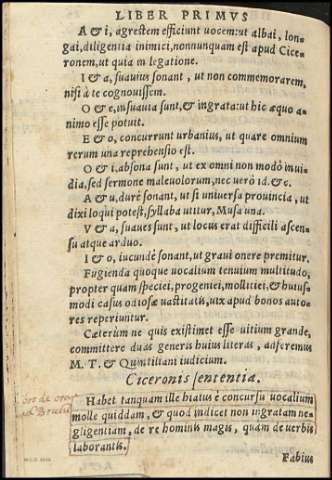 LIBER PRIMVS
A & i, agrestem efficiunt uocem: ut albai, lon-
gai, diligentia inimici, nonnunquam est apud Cice-
ronem, ut quia in legatione.
I & a, suauius sonant, ut non commemorarem,
nisi à te cognouissem.
O & e, insuauia sunt, & ingrata: ut hic æquo a-
nimo esse potuit.
E & o, concurrunt urbanius, ut quare omnium
rerum una reprehensio est.
O & i, absona sunt, ut ex omni non modò inui-
dia, sed sermone maleuolorum, nec uerò id. &c.
A & u, durè sonant, ut si uniuersa prouincia, ut
dixi loqui potest, syllaba utitur, Musa una.
V & a, suaues sunt, ut locus erat difficili ascen-
su atque arduo.
I & o, iucundè sonant, ut graui onere premitur.
Fugienda quoque uocalium tenuium multitudo,
propter quam speciei, progeniei, mollitiei, & huius-
modi casus odiosæ uastitatis, uix apud bonos auto-
res reperiuntur.
Cæterùm ne quis existimet esse uitium grande,
committere duas generis huius literas, adferemus
M. T. & Quintiliani iudicium.
Ciceronis sententia.
Habet tanquam ille hiatus è concursu uocalium
molle quiddam, & quod indicet non ingratam ne-
gligentiam, de re hominis magis, quàm de uerbis
laborantis.
Fabius